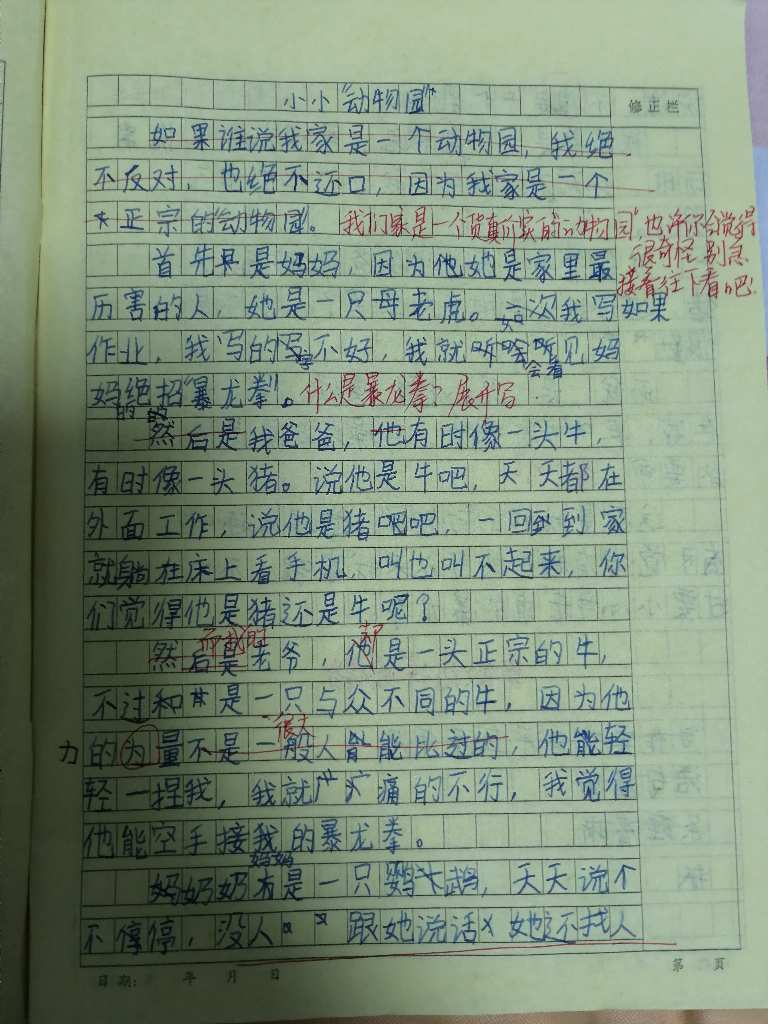 小小“动物园”
修正栏
如果谁说我家是一个动物园，我绝
不反对，也绝不还口，因为我家是一个
正宗的“动物园”。我们家是一个货真价实的“动物园”，也许你会觉得
很奇怪，别急
接着往下看吧！
首先是妈妈，因为他她是家里最
历害的人，她是一只母老虎。一次我写如果
作业，我写的字不好，我就听会看见妈
妈绝招“暴龙拳”。什么是暴龙拳？展开写.
的 的
然后是我爸爸，他有时像一头牛，
有时像一头猪。说他是牛吧，天天都在
外面工作，说他是猪吧吧，一回到到家
就躺在床上看手机，叫也叫不起来，你
们觉得他是猪还是牛呢？
而我的
然后是老爷，他是一头正宗的牛，
不过和是一只与众不同的牛，因为他
很大
力的为量不是一般人能比过的，他能轻
轻一捏我，我就痛的不行，我觉得
他能空手接我的暴龙拳。
妈妈
奶奶是一只鹦鹉，天天说个
不停停，没人跟她说话，她还找人
日期： 年 月 日
第 页